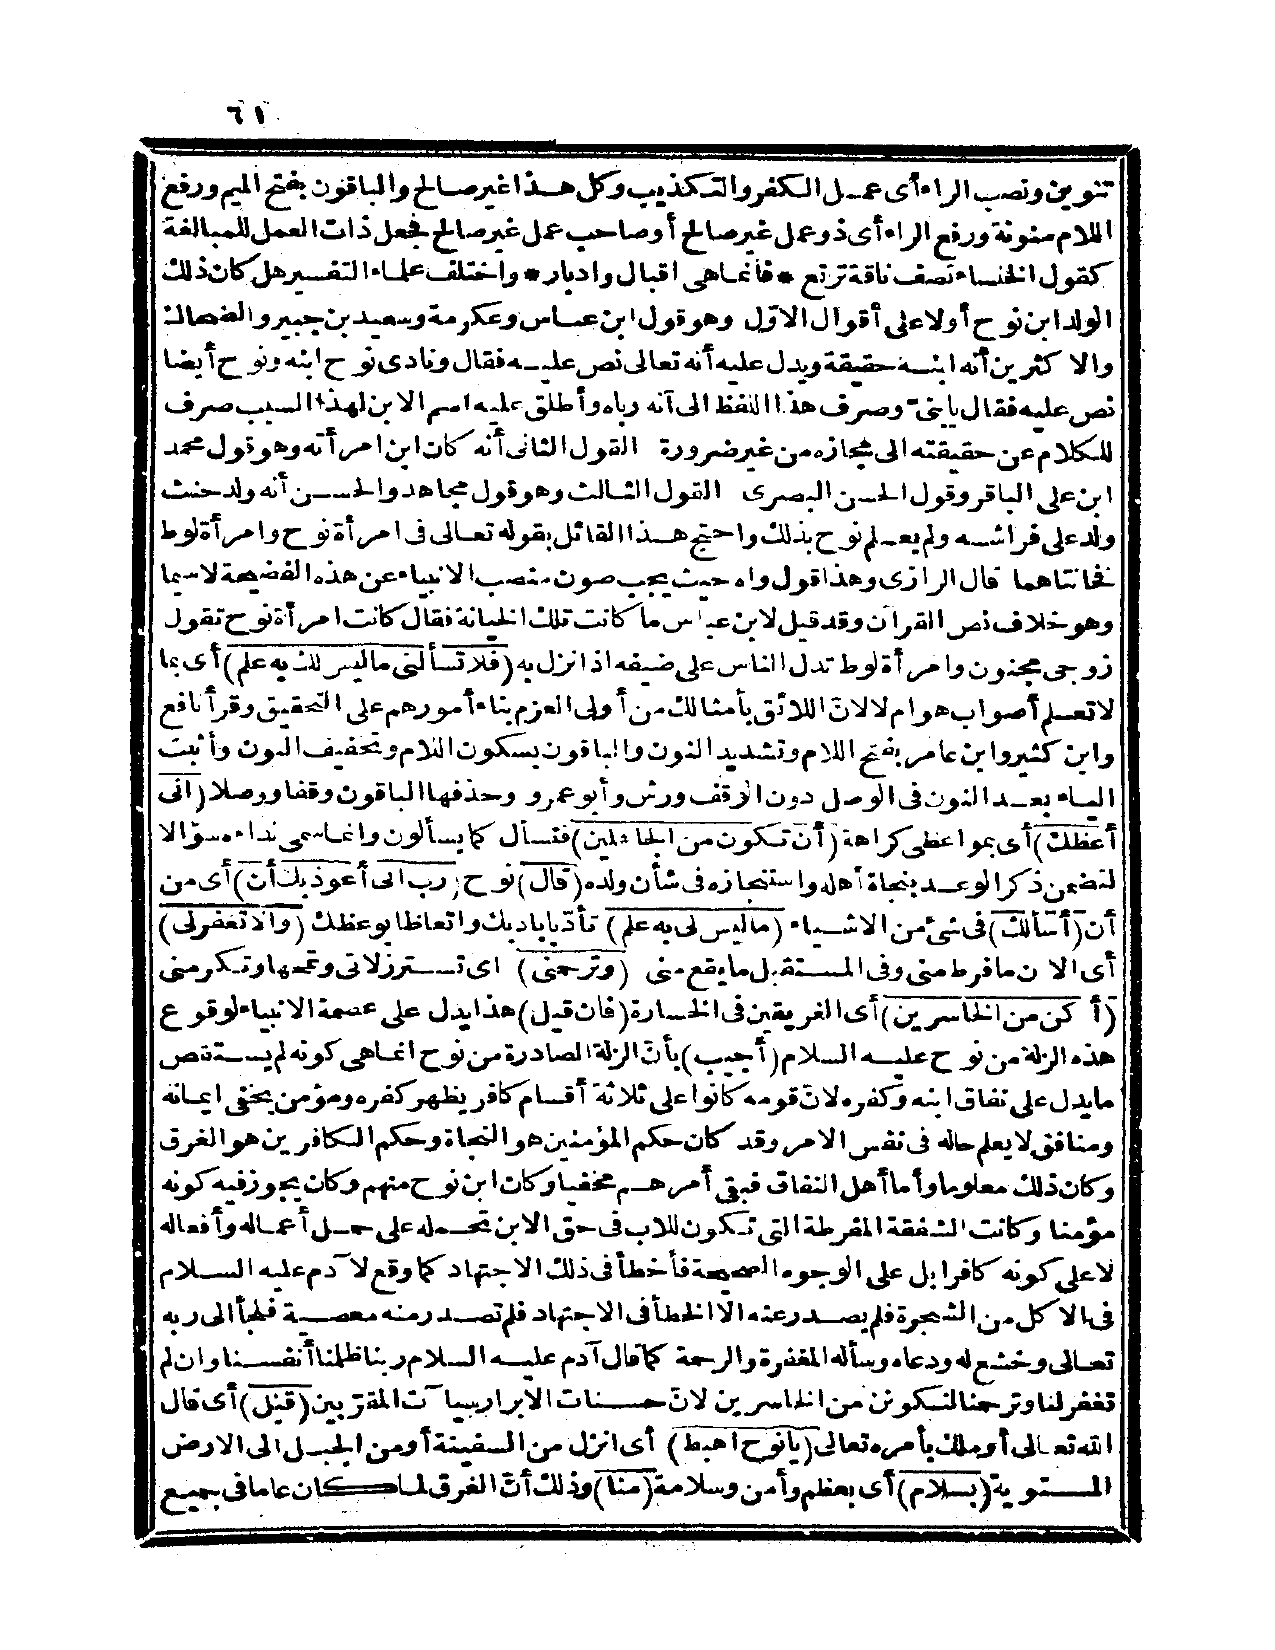 ٦١
تنوين ونصب الراء أى عمل الكفر والتكذيب وكل هذا غير صالح والباقون بفتح الميم ورفع
اللام منونة ورفع الراء أى ذو عمل غير صالح أو صاحب عمل غير صالح فجعل ذات العمل للمبالغة
كقول الخنساء تصف ناقة ترتع * فانما هى اقبال وادبار * واختلف علماء التفسير هل كان ذلك
الولد ابن نوح أولا على أقوال الاوّل وهو قول ابن عباس وعكرمة وسعيد بن جبير والضحاك
والا كثرين أنه ابنه حقيقة ويدل عليه أنه تعالى نص عليه فقال ونادى نوح ابنه ونوح أيضا
نص عليه فقال يابنىّ وصرف هذا اللفظ الى أنه رباه وأطلق عليه اسم الابن لهذا السبب صرف
للكلام عن حقيقته الى مجازه من غير ضرورة القول الثانى أنه كان ابن امرأته وهو قول محمد
ابن على الباقر وقول الحسن البصرى القول الثالث وهو قول مجاهد والحسن أنه ولد حنث
ولد على فراشه ولم يعلم نوح بذلك واحتج هذا القائل بقوله تعالى فى امرأة نوح وامرأة لوط
فخانتاهما قال الرازى وهذا قول واه حيث يجب صون منصب الانبياء عن هذه الفضيحة لاسيما
وهو خلاف نص القرآن وقد قيل لابن عباس ما كانت تلك الخيانة فقال كانت امرأة نوح تقول
زوجى مجنون وامرأة لوط تدل الناس على ضيفه اذا نزل به (فلا تسألنى ما ليس لك به علم) أى بما
لا تعلم أصواب هو أم لا لانّ اللائق بأمثالك من أولى العزم بناء أمورهم على التحقيق وقرأ نافع
وابن كثير وابن عامر بفتح اللام وتشديد النون والباقون بسكون اللام وتخفيف النون وأثبت
الياء بعد النون فى الوصل دون الوقف ورش وأبو عمرو وحذفها الباقون وقفا ووصلا (انى
أعظك) أى بمواعظى كراهة (أن تكون من الجاهلين) فتسأل كما يسألون وانما سمى نداءه سؤالا
لتضمن ذكر الوعد بنجاة أهله واستنجازه فى شأن ولده (قال) نوح (رب انى أعوذ بك أن) أى من
أن (أسألك) فى شئ من الاشياء (ما ليس لى به علم) تأدّبا بادبك واتعاظا بوعظك (والا تغفر لى)
أى الا ن ما فرط منى وفى المستقبل ما يقع منى (وترحمنى) اى تستر زلاتى وتمحها وتكرمنى
(أ كن من الخاسرين) أى الغريقين فى الخسارة (فان قيل) هذا يدل على عصمة الانبياء لوقوع
هذه الزلة من نوح عليه السلام (أجيب) بأنّ الزلة الصادرة من نوح انما هى كونه لم يستقص
ما يدل على نفاق ابنه وكفره لانّ قومه كانوا على ثلاثة أقسام كافر يظهر كفره ومؤمن يخفى ايمانه
ومنافق لا يعلم حاله فى نفس الامر وقد كان حكم المؤمنين هو النجاة وحكم الكافرين هو الغرق
وكان ذلك معلوما وأما أهل النفاق فبقى أمرهم مخفيا وكان ابن نوح منهم وكان يجوز فيه كونه
مؤمنا وكانت الشفقة المفرطة التى تكون للاب فى حق الابن تحمله على حمل أعماله وأفعاله
لا على كونه كافرا بل على الوجوه الصحيحة فأخطأ فى ذلك الاجتهاد كما وقع لا دم عليه السلام
فى الا كل من الشجرة فلم يصدر عنه الا الخطأ فى الاجتهاد فلم تصدر منه معصية فلجأ الى ربه
تعالى وخشع له ودعاه وسأله المغفرة والرحمة كما قال آدم عليه السلام ربنا ظلمنا أنفسنا وان لم
تغفر لنا وترحمنا لنكونن من الخاسرين لانّ حسنات الابرار سيا ت المقرّبين (قيل) أى قال
الله تعالى أو ملك بأمره تعالى (يا نوح اهبط) أى انزل من السفينة أو من الجبل الى الارض
المستوية (بسلام) أى بعظم وأمن وسلامة (منا) وذلك أنّ الغرق لما كان عاما فى جميع